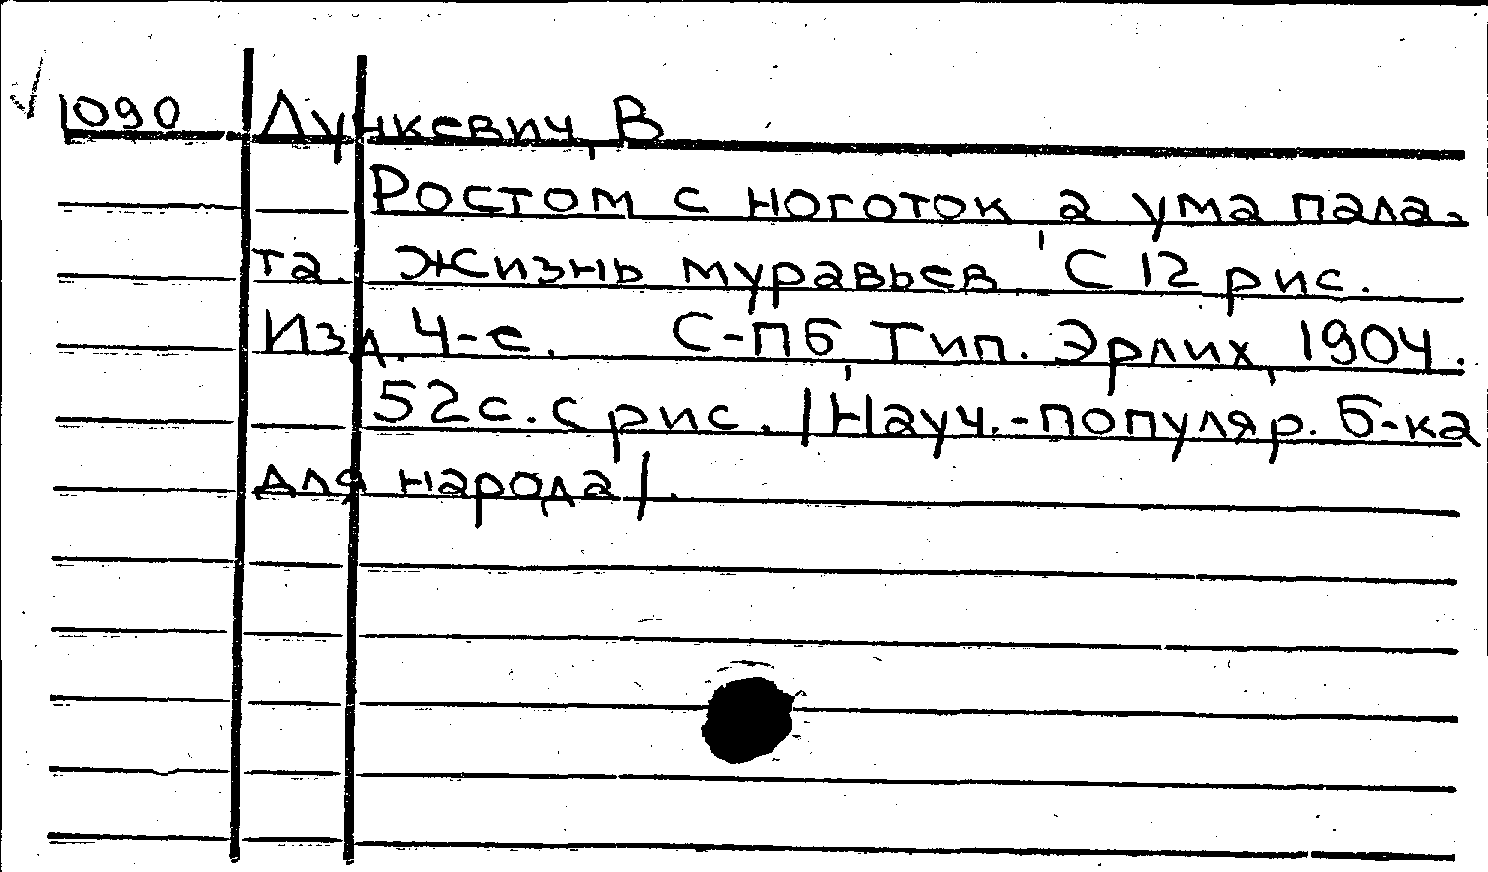 1090 Лункевич, В
Ростом с ноготок, а ума пала-
та. Жизнь муравьев. С 12 рис.
Изд. 4-е. С-Пб, Тип. Эрлих, 1904.
52 с. с рис. /Науч.-популяр. б-ка
для народа/.